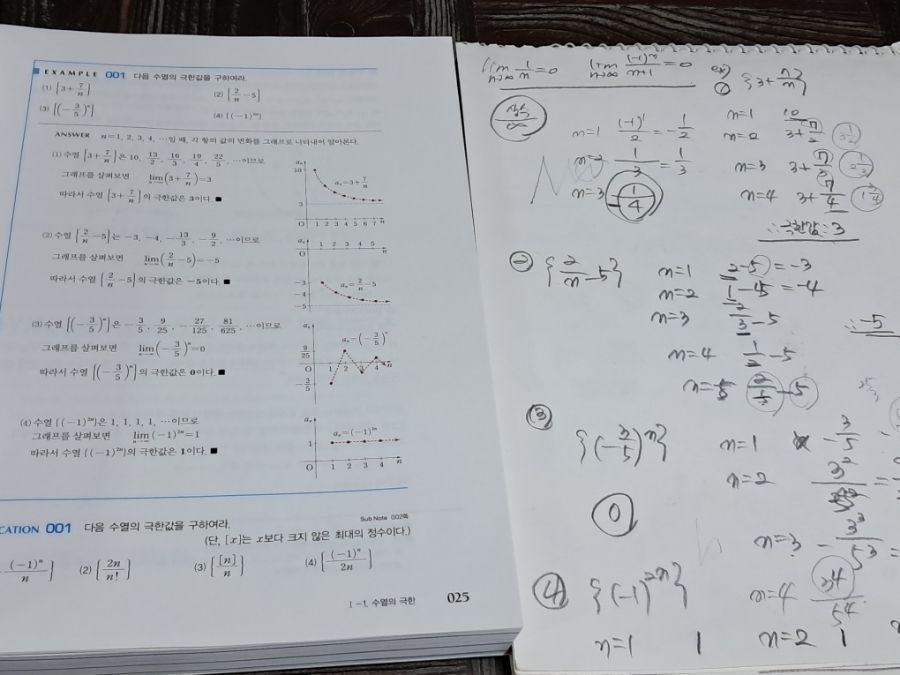 EXAMPLE 001 다음 수열의 극한값을 구하여라.
(1) {3+7/n} (2) {2/n-5}
(3) {(-3/5)^n} (4) {(-1)^2n}
ANSWER n=1, 2, 3, 4, …일 때, 각 항의 값의 변화를 그래프로 나타내어 알아본다.
(1) 수열 {3+7/n}은 10, 13/2, 16/3, 19/4, 22/5, …이므로
그래프를 살펴보면 lim n→∞ (3+7/n)=3
따라서 수열 {3+7/n}의 극한값은 3이다. ■
aₙ
10
aₙ=3+7/n
3
O 1 2 3 4 5 6 7 n
(2) 수열 {2/n-5}는 -3, -4, -13/3, -9/2, …이므로
그래프를 살펴보면 lim n→∞ (2/n-5)=-5
따라서 수열 {2/n-5}의 극한값은 -5이다. ■
aₙ 1 2 3 4 5
O n
-3
-4
-5
aₙ=2/n-5
(3) 수열 {(-3/5)^n}은 -3/5, 9/25, -27/125, 81/625, …이므로
그래프를 살펴보면 lim n→∞ (-3/5)^n=0
따라서 수열 {(-3/5)^n}의 극한값은 0이다. ■
aₙ
aₙ=(-3/5)^n
9/25
O 1 2 3 4 n
-3/5
(4) 수열 {(-1)^2n}은 1, 1, 1, 1, …이므로
그래프를 살펴보면 lim n→∞ (-1)^2n=1
따라서 수열 {(-1)^2n}의 극한값은 1이다. ■
aₙ
aₙ=(-1)^2n
1
O 1 2 3 4 n
Sub Note 002쪽
CATION 001 다음 수열의 극한값을 구하여라.
(단, [x]는 x보다 크지 않은 최대의 정수이다.)
(-1)^n/n} (2) {2n/n!} (3) {[n]/n} (4) {(-1)^n/2n}
Ⅰ-1. 수열의 극한 025
lim n→∞ 1/n=0 lim n→∞ (-1)^n/n+1=0 ex) ① {3+7/n}
상수/∞
n=1 (-1)^1/2=-1/2
n=2 1/3=1/3
n=3 -1/4
n=1 10
n=2 3+7/2 3 1/2
n=3 3+7/3
n=4 3+7/4 1 3/4
∴극한값:3
② {2/n-5} n=1 2-5=-3
n=2 1-5=-4
n=3 2/3-5
∴-5
n=4 1/2-5
n=5 2/5-5
③ {(-3/5)^n} n=1 -3/5
n=2 3^2/5^2
0
n=3 -3^3/5^3
④ {(-1)^2n} n=4 3^4/5^4
n=1 1 n=2 1